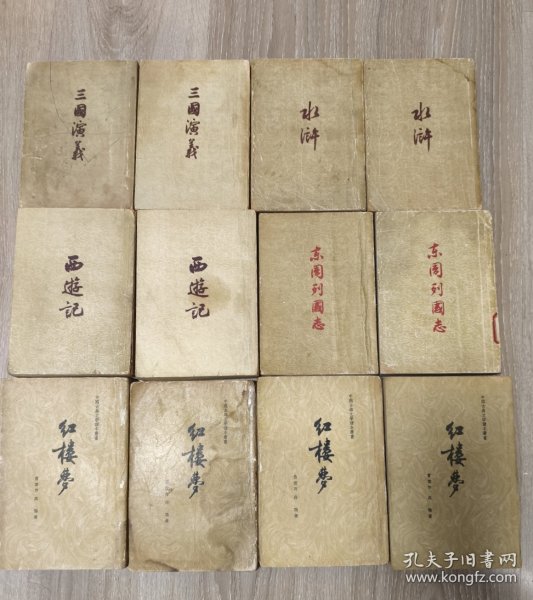 三國演義
三國演義
水滸
水滸
西遊記
西遊記
东周列國志
东周列國志
红楼梦
红楼梦
红楼梦
红楼梦
孔夫子旧书网
www.kongfz.com